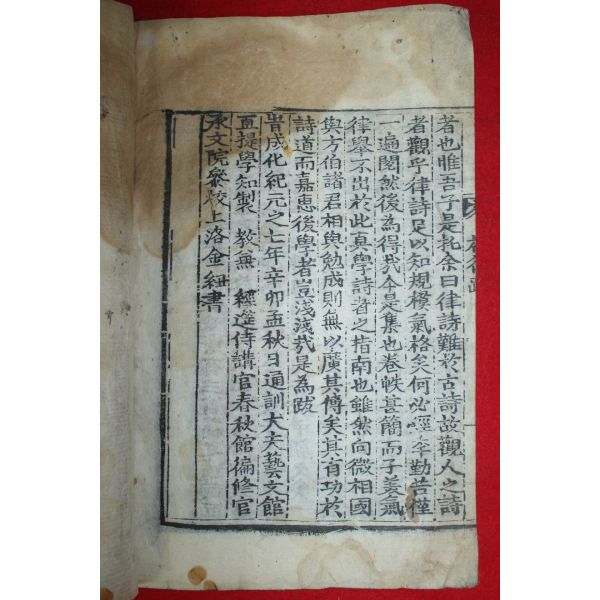 者也惟吾子是托余曰律詩難於古詩故觀人之詩
者觀乎律詩足以知規橅氣格矣何必經年勤苦徑
一遍閱然後為得我今是集也卷帙甚簡而子美氣
律擧不出於此真學詩者之指南也雖然向微相國
與方伯諸君相與勉成則無以廣其傳矣其有功於
詩道而嘉惠後學者豈淺淺㢤是為跋
旹成化紀元之七年辛卯孟秋日通訓大夫藝文館
直提學知製 教兼 經筵侍講官春秋館編修官
承文院叅校上洛金紐書